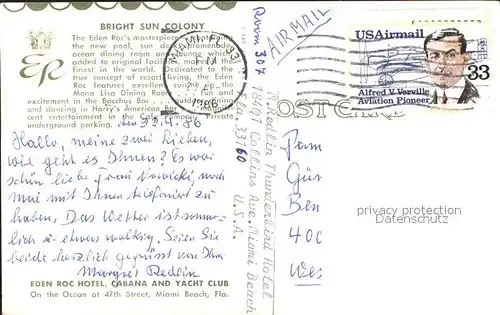 BRIGHT SUN COLONY
The Eden Roc's masterpieces
the new pool, sun deck, promenade
ocean dining room and lounge which
added to original facilities, make
finest in the world. Dedicated to
the ultimate in dining, the Eden
Roc features excellent food in the
Mona Lisa Dining Room
excitement in the Bacchus Bar
and dancing in Harry's American Bar
cent entertainment in the Café Pompeii. Private
underground parking.
ER
MIAMI, FL 331
1986
den 22.4.86
Hallo, meine zwei Lieben,
wie geht es Ihnen? Es war
schön liebe Frau Nowicki, noch
mal mit Ihnen telefoniert zu
haben. Das Wetter ist sonn-
lich u. etwas wolkig. Seien Sie
beide herzlich gegrüsst von Ihrer
Margret Redlin
EDEN ROC HOTEL, CABANA AND YACHT CLUB
On the Ocean at 47th Street, Miami Beach, Fla.
Room 307
M. Redlin Thunderbird Hotel
18401 Collins Ave. Miami Beach
Fla 33160
U.S.A.
AIRMAIL
USAirmail
33
Alfred V. Verville
Aviation Pioneer
POST C
Gün
Ben
400
Wes
privacy protection
Datenschutz